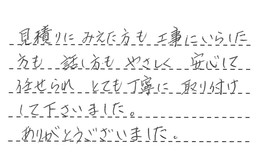 見積りに みえた方も 工事にいらした
方も 話し方も やさしく 安心して
任せられ とても丁寧に 取り付け
して下さいました。
ありがとうございました。